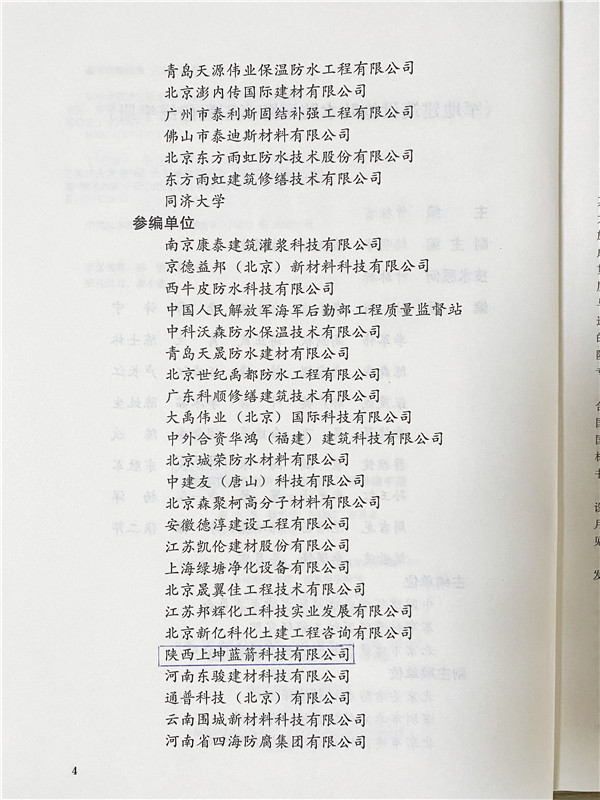 青岛天源伟业保温防水工程有限公司
北京澎内传国际建材有限公司
广州市泰利斯固结补强工程有限公司
佛山市泰迪斯材料有限公司
北京东方雨虹防水技术股份有限公司
东方雨虹建筑修缮技术有限公司
同济大学
参编单位
南京康泰建筑灌浆科技有限公司
京德益邦（北京）新材料科技有限公司
西牛皮防水科技有限公司
中国人民解放军海军后勤部工程质量监督站
中科沃森防水保温技术有限公司
青岛天晟防水建材有限公司
北京世纪禹都防水工程有限公司
广东科顺修缮建筑技术有限公司
大禹伟业（北京）国际科技有限公司
中外合资华鸿（福建）建筑科技有限公司
北京城荣防水材料有限公司
中建友（唐山）科技有限公司
北京森聚柯高分子材料有限公司
安徽德淳建设工程有限公司
江苏凯伦建材股份有限公司
上海绿塘净化设备有限公司
北京晟翼佳工程技术有限公司
江苏邦辉化工科技实业发展有限公司
北京新亿科化土建工程咨询有限公司
陕西上坤蓝箭科技有限公司
河南东骏建材科技有限公司
通普科技（北京）有限公司
云南围城新材料科技有限公司
河南省四海防腐集团有限公司
4